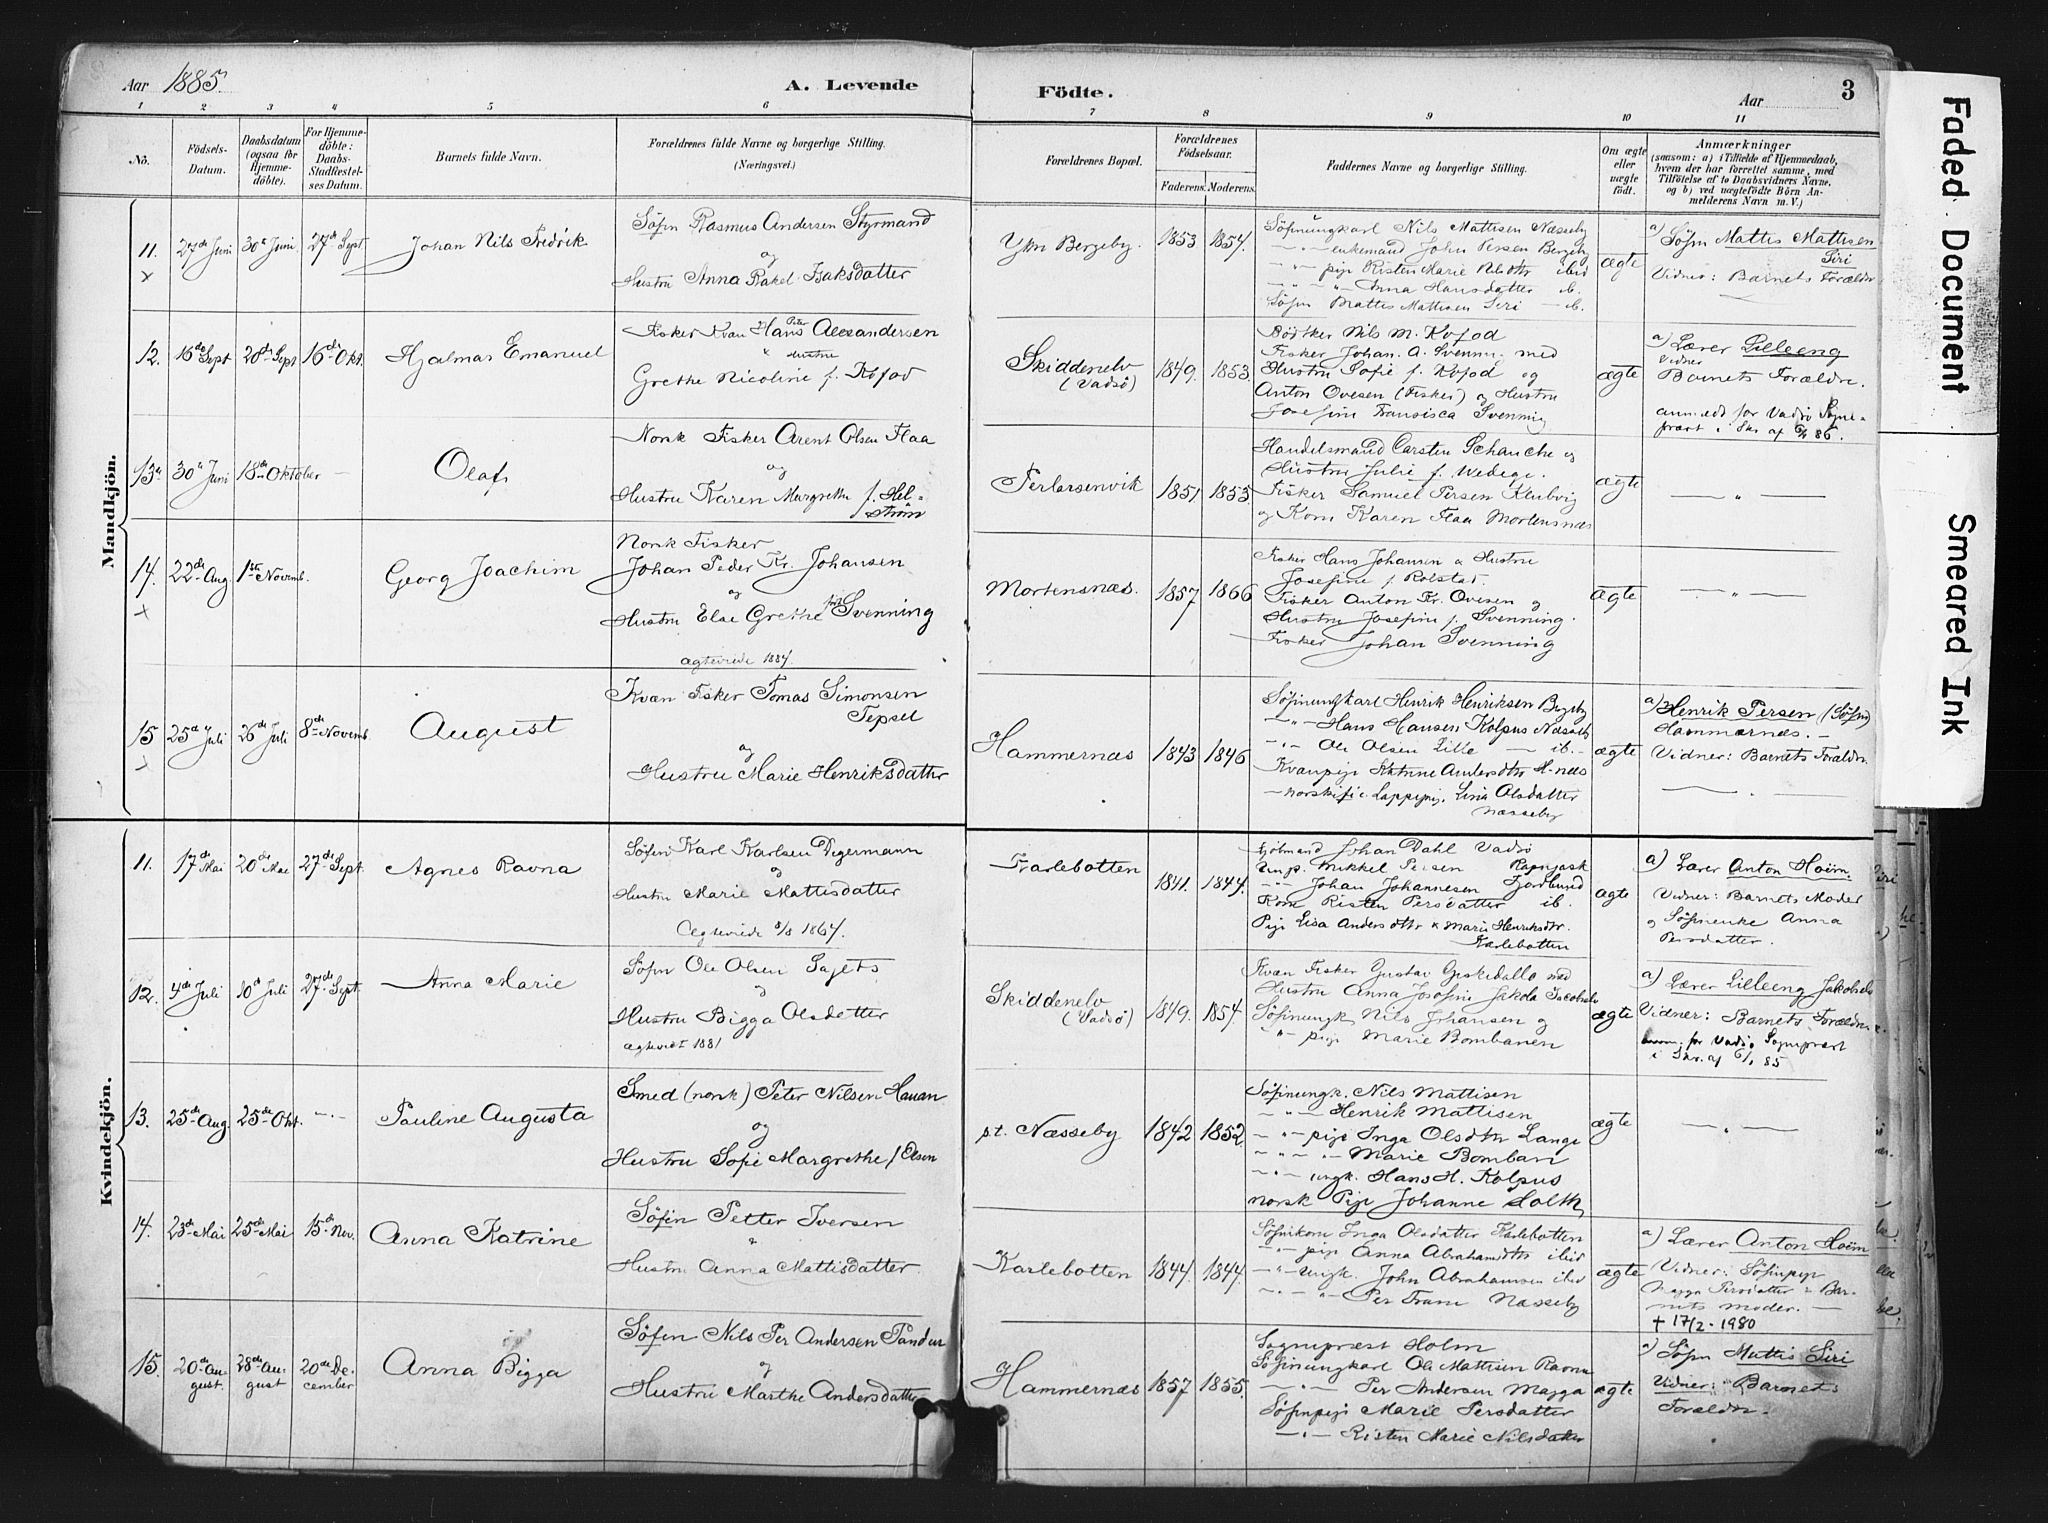 Aar 1885. A. Levende Födte. Aar 3
1 2 3 4 5 6 7 8 9 10 11
No.
Födsels-Datum.
Daabsdatum (ogsaa for Hjemme-döbte).
For Hjemme-döbte: Daabs-Stadfæstel-ses Datum.
Barnets fulde Navn.
Forældrenes fulde Navne og borgerlige Stilling.
(Næringsvei.)
Forældrenes Bopæl.
Forældrenes Födselsaar.
Faderens. Moderens.
Faddernes Navne og borgerlige Stilling.
Om ægte eller uægte födt.
Anmærkninger
(saasom: a) i Tilfælde af Hjemmedaab,
hvem der har forrettet samme, med
Tilföielse af to Daabsvidners Navne,
og b) ved uægtefödte Börn An-
melderens Navn m. V.)
Mandkjön.
11. 27de Juni 30te Juni 27de Sept Johan Nils Fredrik
Söfin Rasmus Andersen Styrmand
og
Hustru Anna Rakel Isaksdatter
Bergeby. 1853 1854.
Söfinungkarl Nils Mattisen Næsseby
enkemand John Persen Bergeby
pige Risten Marie Nilsdtr ibid
Anna Hansdatter ib.
Söfn Mattis Mattisen Siri — ib.
ægte
a) Söfn Mattis Mattisen
Siri
Vidner: Barnets Forældre
12. 16de Sept 20de Sept 16de Okt. Hjalmar Emanuel
Fisker Kvæn Hans Peter Alexandersen
Hustru
Grethe Nicoline f. Kofod
Skiddenelv
(Vadsö)
1849. 1853.
Bödker Nils M. Kofod
Fisker Johan A. Svenni. med
Hustru Sofie f. Kofod og
Anton Ovesen (Fisker) og Hustru
Josefine Fransisca Svenning
ægte
a) Lærer Lilleeng
Vidner
Barnets Forældre.
anmeldt for Vadsö Sogne-
præst i Skr af
13. 30te Juni 18de Oktober — Olaf
Norsk Fisker Arent Olsen Flaa
og
Hustru Karen Margrethe f. Hel-
ström
Perlarsenvik 1851 1855
Handelsmand Carsten Schanche og
Hustru Julie f. Wedege.
Fisker Samuel Persen Klubvig
og Kone Karen Flaa Mortensnæs
ægte
— " —
14. 22de Aug 1ste Novemb. Georg Joachim
Norsk Fisker
Johan Peder Kr. Johansen
og
Hustru Else Grethe född Svenning
ægteviede 1884.
Mortensnæs. 1857 1866
Fisker Hans Johansen & Hustru
Josefine f. Rolstad.
Fisker Anton Kr. Ovesen og
Hustru Josefine f. Svenning.
Fisker Johan Svenning
ægte
— " —
15 25de Juli 26de Juli 8de Novemb. August
Kvæn Fisker Tomas Simonsen
Tepsel
og
Hustru Marie Henriksdatter
Hammernæs 1843 1846
Söfinungkarl Henrik Henriksen Bergeby
— " — Hans Hansen Kolpus Næsseb.
— " — Ole Olsen Lille — ib. —
Kvænpige Katrine Andersdtr H-næs
Lappepig. Lina Olsdatter
Næsseby
ægte
a) Henrik Persen (Söfin)
Hammernæs. —
Vidner: Barnets Forældre.
Kvindekjön.
11. 17de Mai 20de Mai 27de Sept. Agnes Ravna
Söfin Karl Karlsen Degermann
og
Hustru Marie Mattisdatter
Ægteviede 5/8 1867.
Karlebotten 1841. 1844.
Johan Dahl Vadsö
Mikkel Persen
Johan Johannesen Fjordbund
Kone Risten Persdatter ib.
Pige Lisa Andersdtr & Marie Henriksdtr.
Karlebotten
ægte
a) Lærer Anton Hoëm.
Vidner: Barnets Moder
og Söfinenke Anna
Persdatter.
12. 4de Juli 10de Juli 27de Sept. Anna Marie
Söfn Ole Olsen Sajets
og
Hustru Bigga Olsdatter
ægteviet 1881
Skiddenelv
(Vadsö)
1849. 1854.
Kvæn Fisker Gustav Giskedalla med
Hustru Anna Josefine Jakola Jacobselv
Söfinungk. Nils Johansen og
" — pige Marie Bombanen
ægte
a) Lærer Lilleeng Jakobselv
Vidner: Barnets Forældre
anm. for Vadsö Sognepræst
i Skr. af 6/1 85
13. 25de Aug. 25de Okt. — " — Pauline Augusta
Smed (norsk) Peter Nilsen Hauan
og
Hustru Sofie Margrethe f Olsen
pt. Næsseby 1842 1852
Söfinungk. Nils Mattisen
— " — Henrik Mattisen
— " — pige Inga Olsdtr Lange
— " — Marie Bomban
— " — ungk. Hans H. Kolpus
norsk Pige Johanne Holth
ægte
— " —
14. 23de Mai 25de Mai 15de Nov. Anna Katrine
Söfin Petter Iversen
&
Hustru Anna Mattisdatter
Karlebotten 1844. 1844.
Söfinkone Inga Olsdatter Karlebotten
— " — pige Anna Abrahamdtr ibid
— " — ungk. John Abrahamsen ibid
— " — Per Fram Næsseby
ægte
a) Lærer Anton Hoëm
Vidner: Söfinpige
Magga Persdatter & Bar-
nets moder. —
† 17/2 - 1980
15. 20de Au-gust. 28de Au-gust 20de De-cember Anna Bigga
Söfin Nils Per Andersen Pandur
og
Hustru Marthe Andersdatter
Hammernæs 1857 1855.
Sognepræst Holm
Söfinungkarl Ole Mattisen Ravna
— " — Per Andersen Magga
Söfinpige Marie Persdatter
— " — Risten Marie Nilsdatter
ægte
a) Söfn Mattis Siri
Vidner: Barnets
Forældre.
Faded Document
Smeared Ink